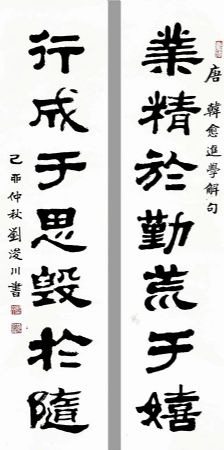 唐 韓愈進學解句
業精於勤荒于嬉
行成于思毀於隨
己亚仲秋劉浚川書